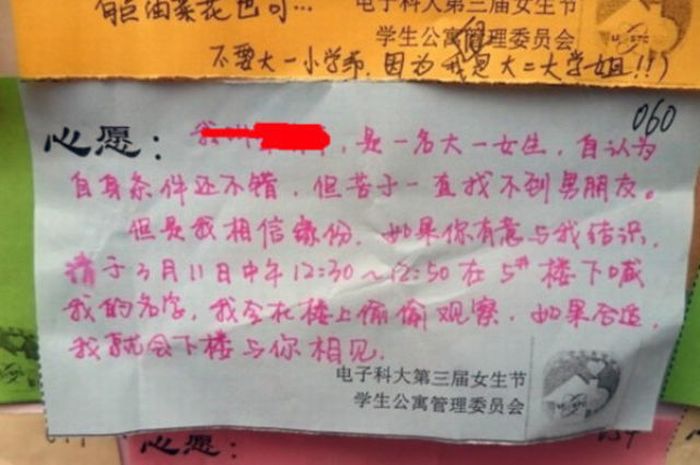 有巨油菜花也可…
电子科大第三届女生节
学生公寓管理委员会
不要大一小学弟,因为我是大二大学姐!!)
060
心愿:
我叫 ,是一名大一女生,自认为
自身条件还不错,但苦于一直找不到男朋友。
但是我相信缘份,如果你有意与我结识,
请于3月11日中午12:30~12:50在5#楼下喊
我的名字,我会在楼上偷偷观察,如果合适,
我就会下楼与你相见.
电子科大第三届女生节
学生公寓管理委员会
心愿: